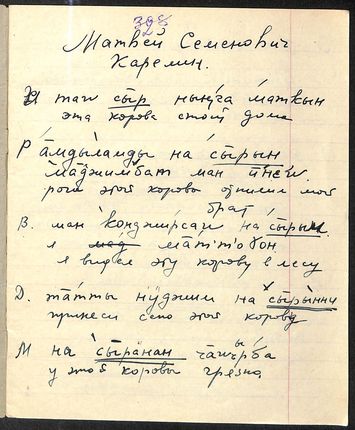 398
2
Матвей Семенович
Карелин.
И таw сы̄р ның̃га мāткын
эта корова стоит дома
Р āмды̄ламды на сы̄рын
мāджимбат ман
рога этой коровы отпилил мой
брат
В. ман конджирсаw на сы̄рым
я мāтто̄ɣон
я видел эту корову в лесу
Д. тāтты нӱджим на сы̄рынни
принеси сено этой корове
М на сы̄рāнан
у этой коровы грязно